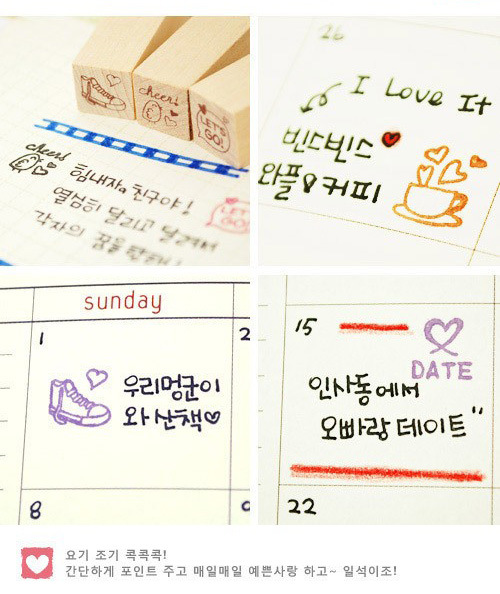 cheers
LET'S GO!
cheers
힘내자, 친구야!
열심히 달리고 달려서
LET'S GO!
각자의 꿈을
26
I Love It
빈스빈스
와플&커피
sunday
1
2
우리멍군이
와 산책
8
15
DATE
인사동에서
오빠랑 데이트"
22
요기 조기 콕콕콕!
간단하게 포인트 주고 매일매일 예쁜사랑 하고~ 일석이조!